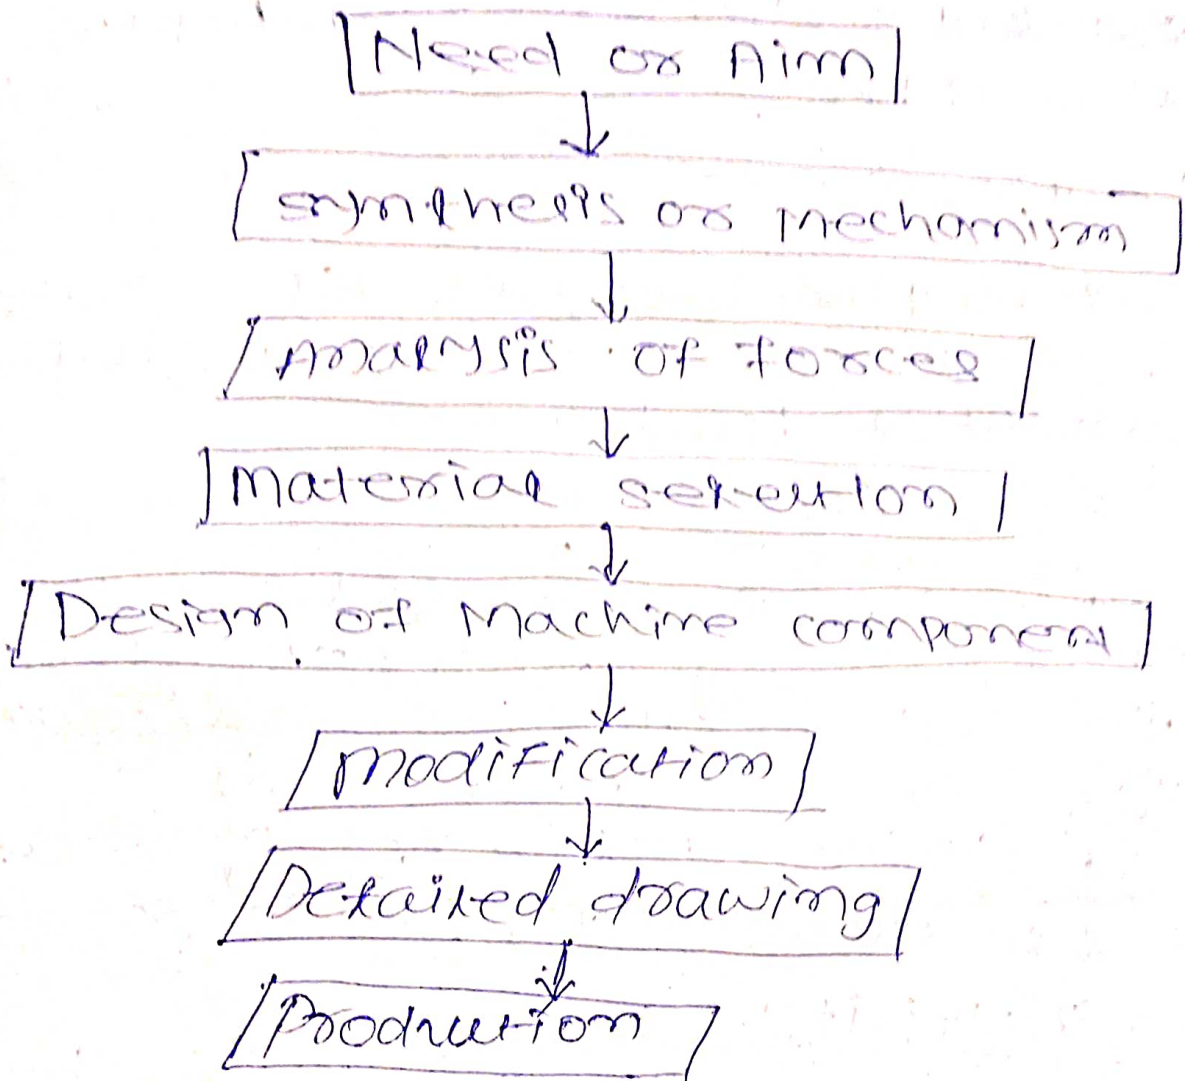 Need or Aim
synthesis or Mechanism
Analysis of forces
Material selection
Design of Machine component
Modification
Detailed drawing
Production